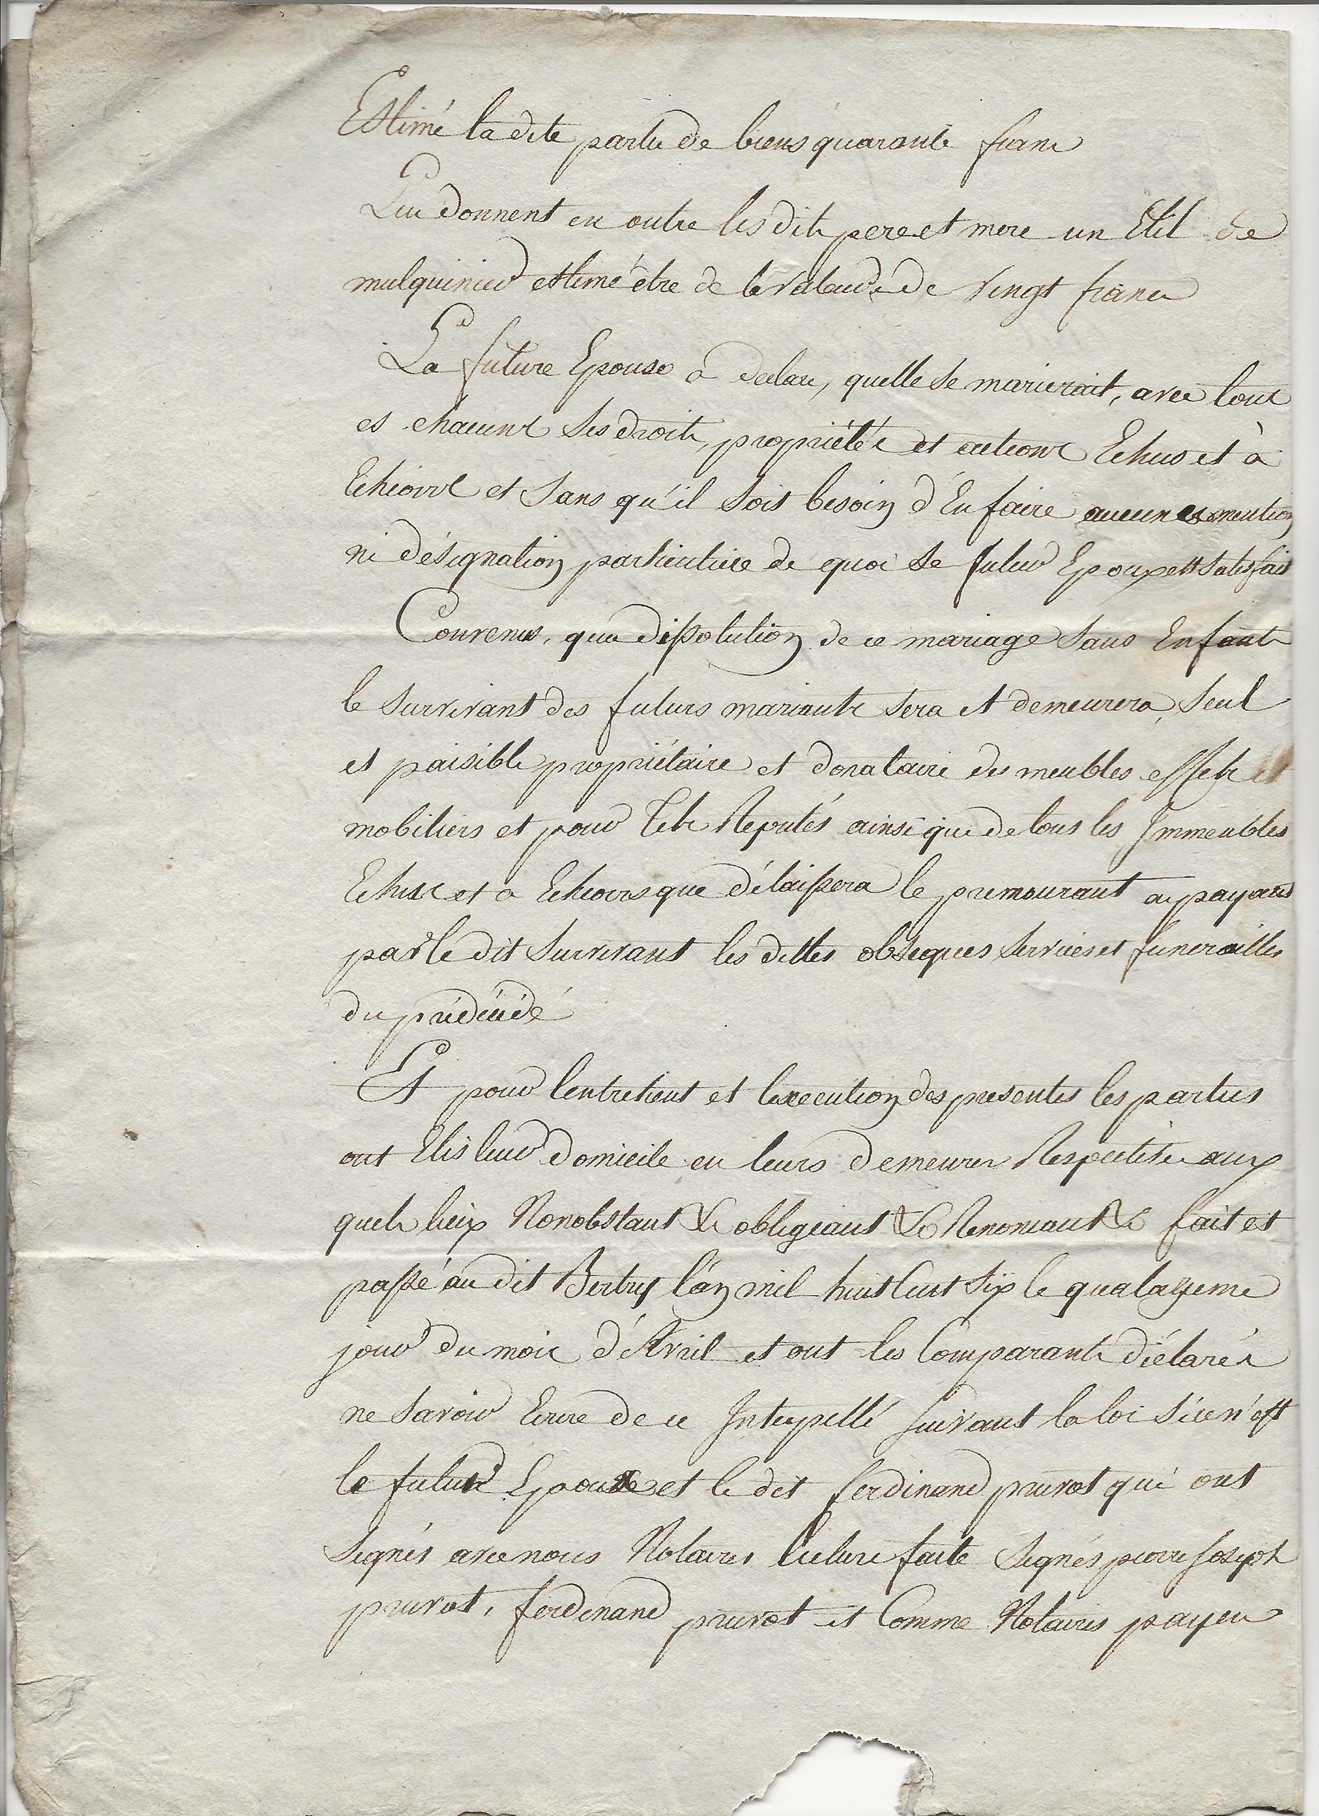 Estimé la dite partie de biens quarante franc
Lui donnent en outre les dits pere et mere un Etil de
mulquinier estimé être de la valeur de vingt francs
La future Epouse a declaré, quelle se marierait, avec tout
es chacuns ses droits, propriétés et actions Echus et à
Echéoir et sans qu'il soit besoin d'En faire aucunes mention
ni désignation particuliere de quoi le futur Epoux est satisfait
Convenus, que dissolution de ce mariage sans Enfants
le survivant des futurs mariants sera et demeurera, seul
et paisible propriétaire et donataire des meubles effets et
mobiliers et pour tels Reputés ainsi que de tous les Immeubles
Echus et a Echeoirs que délaissera le premourant en payant
par le dit survivant les dettes obseques services et funerailles
du prédécédé
Et pour lentretient et lexecution des presentes les parties
ont Elis leur domicile en leurs demeures Respectives aux
quels lieux Nonobstant &c obligeant &c Renoncant &c fait et
passé au dit Bertry l'an mil huit Cent six le quatorzieme
jour du mois d'Avril et ont les Comparants déclarés
ne savoir Ecrire de ce Interpellé suivant la loi si ce n'est
le futur Epoux et le dit ferdinand pruvot qui ont
signés avec nous Notaires lecture faite Signés pierre Joseph
pruvot, ferdinand pruvot et Comme Notaires payen